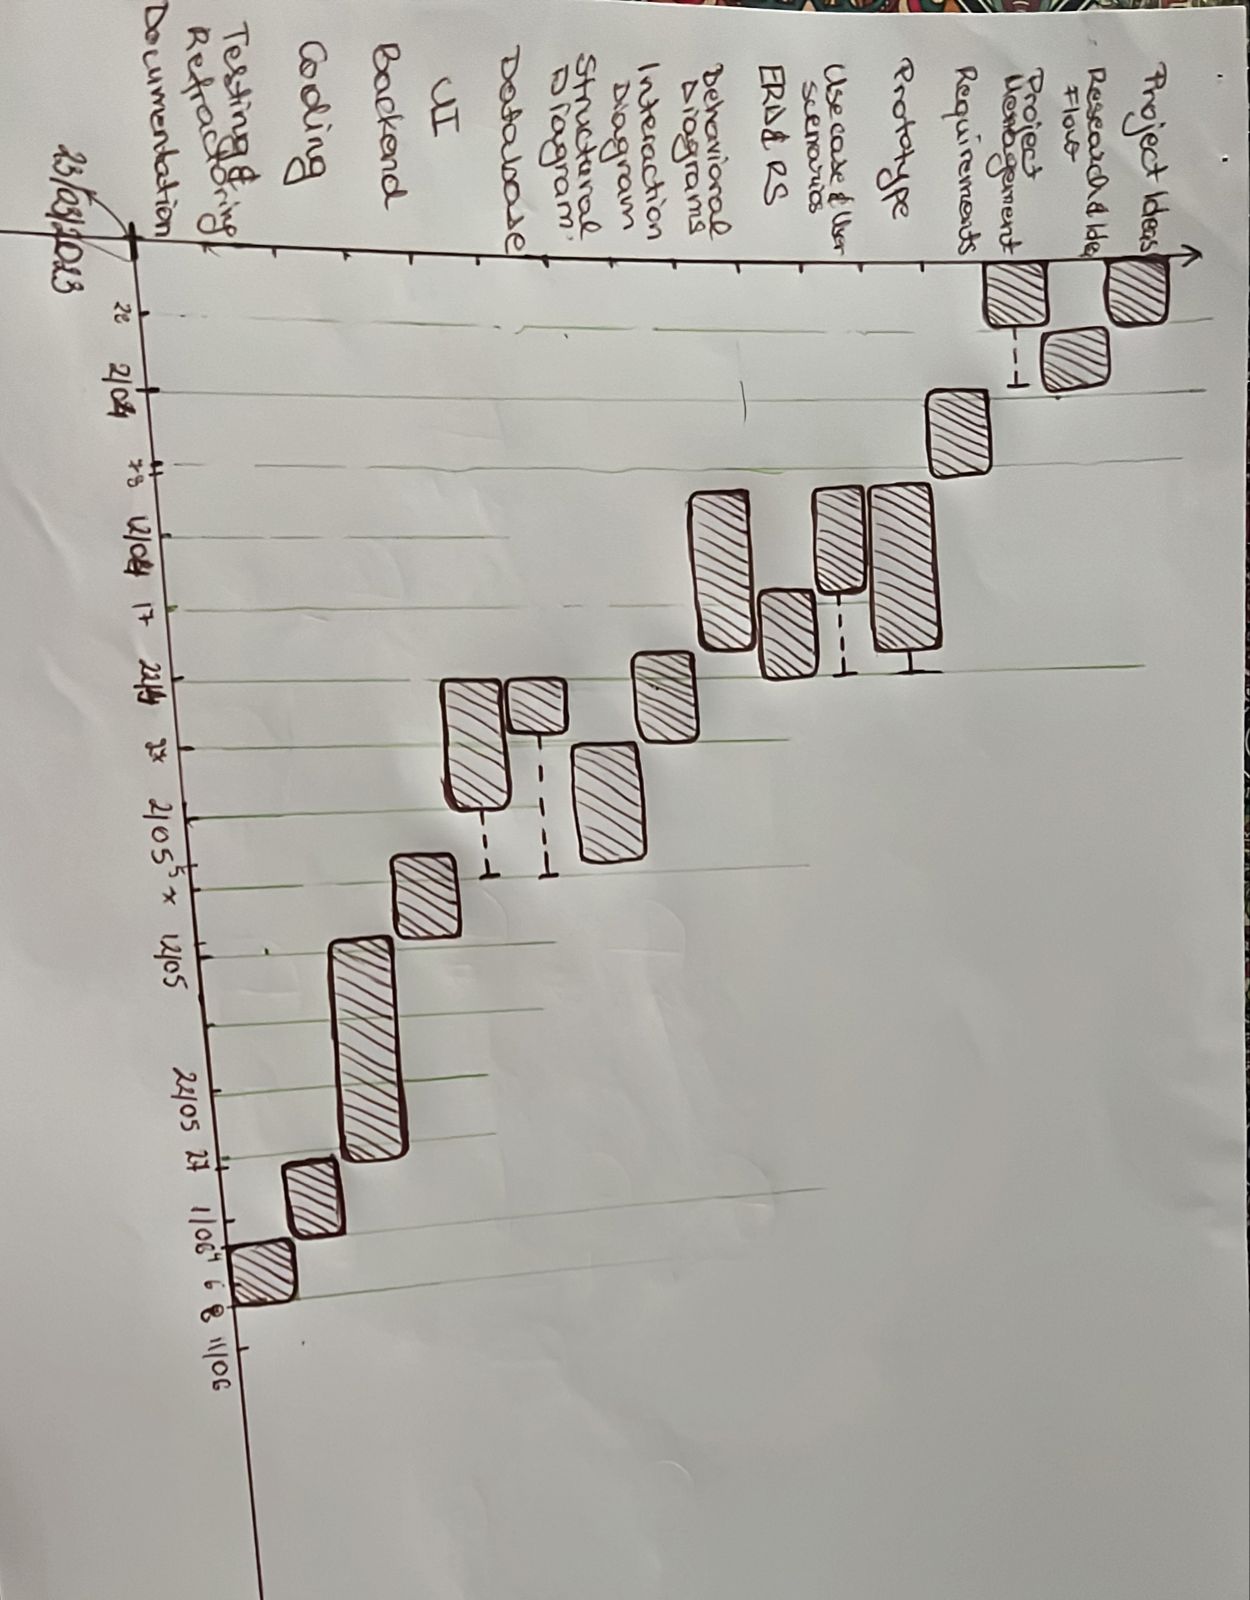 Project Ideas
Research & Idea
Flow
Project
Management
Requirements
Prototype
Use case & User
scenarios
ERD & RS
Behavioral
Diagrams
Interaction
Diagram
Structural
Diagram
Database
UI
Backend
Coding
Testing &
Refractoring
Documentation
23/03/2023
28
2/04
7 8
12/04
17
22/4
27
2/05
5
7
12/05
22/05
27
1/06
4
6
8
11/06